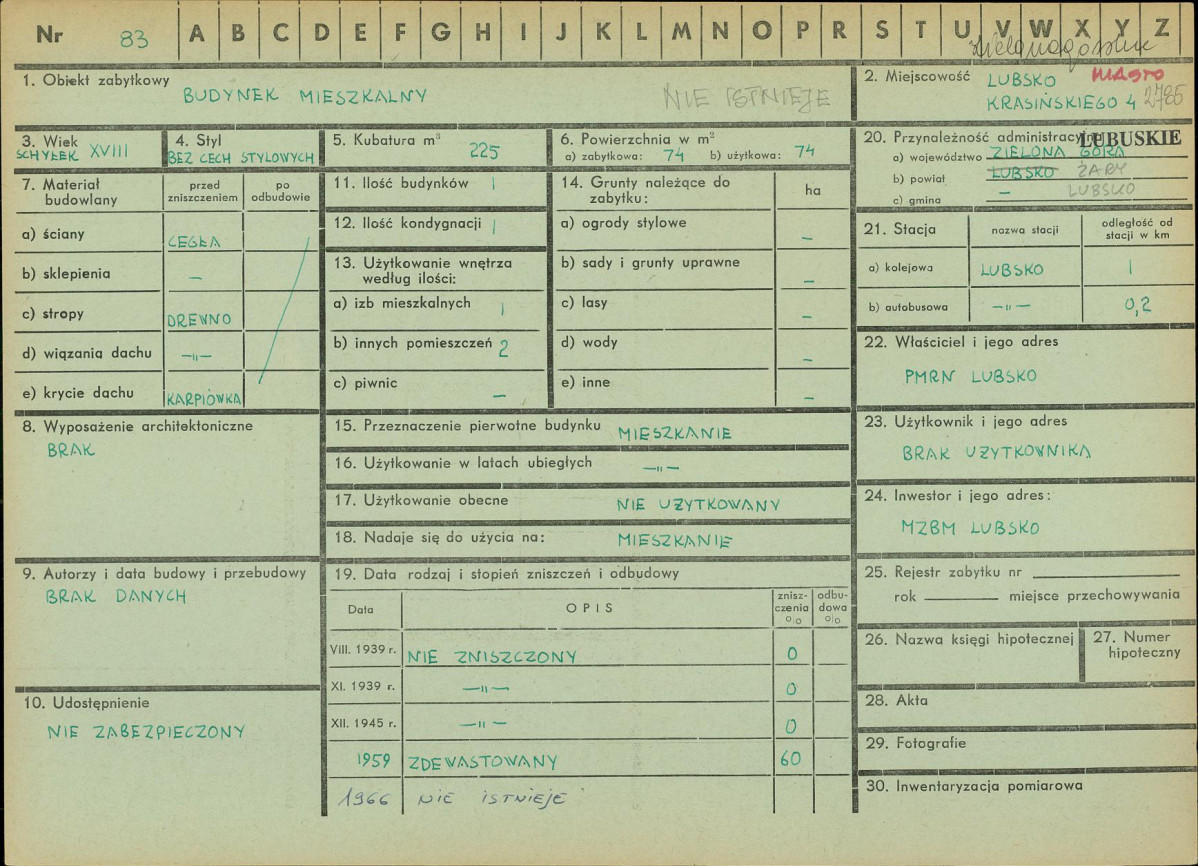 Nr 83 A B C D E F G H I J K L M N O P R S T U V W X Y Z
Zielonogórskie
1. Obiekt zabytkowy
BUDYNEK MIESZKALNY NIE ISTNIEJE
2. Miejscowość LUBSKO MIASTO
KRASIŃSKIEGO 4 2785
3. Wiek
SCHYŁEK XVIII
4. Styl
BEZ CECH STYLOWYCH
5. Kubatura m³
225
6. Powierzchnia w m²
a) zabytkowa: 74 b) użytkowa: 74
20. Przynależność administracyjna
LUBUSKIE
a) województwo ZIELONA GÓRA
b) powiat LUBSKO ŻARY
c) gmina — LUBSKO
7. Materiał budowlany
przed zniszczeniem
po odbudowie
a) ściany CEGŁA
b) sklepienia —
c) stropy DREWNO
d) wiązania dachu —"—
e) krycie dachu KARPIÓWKA
11. Ilość budynków 1
12. Ilość kondygnacji 1
13. Użytkowanie wnętrza
według ilości:
a) izb mieszkalnych 1
b) innych pomieszczeń 2
c) piwnic —
14. Grunty należące do
zabytku:
ha
a) ogrody stylowe —
b) sady i grunty uprawne —
c) lasy —
d) wody —
e) inne —
21. Stacja
nazwa stacji
odległość od
stacji w km
a) kolejowa LUBSKO 1
b) autobusowa —"— 0,2
22. Właściciel i jego adres
PMRN LUBSKO
8. Wyposażenie architektoniczne
BRAK
15. Przeznaczenie pierwotne budynku MIESZKANIE
16. Użytkowanie w latach ubiegłych —"—
17. Użytkowanie obecne NIE UŻYTKOWANY
18. Nadaje się do użycia na: MIESZKANIE
23. Użytkownik i jego adres
BRAK UŻYTKOWNIKA
24. Inwestor i jego adres:
MZBM LUBSKO
9. Autorzy i data budowy i przebudowy
BRAK DANYCH
19. Data rodzaj i stopień zniszczeń i odbudowy
Data OPIS
znisz-
czenia
o|o
odbu-
dowa
o|o
VIII. 1939 r. NIE ZNISZCZONY 0
XI. 1939 r. —"— 0
XII. 1945 r. —"— 0
1959 ZDEWASTOWANY 60
1966 NIE ISTNIEJE
25. Rejestr zabytku nr
rok miejsce przechowywania
26. Nazwa księgi hipotecznej
27. Numer
hipoteczny
10. Udostępnienie
NIE ZABEZPIECZONY
28. Akta
29. Fotografie
30. Inwentaryzacja pomiarowa